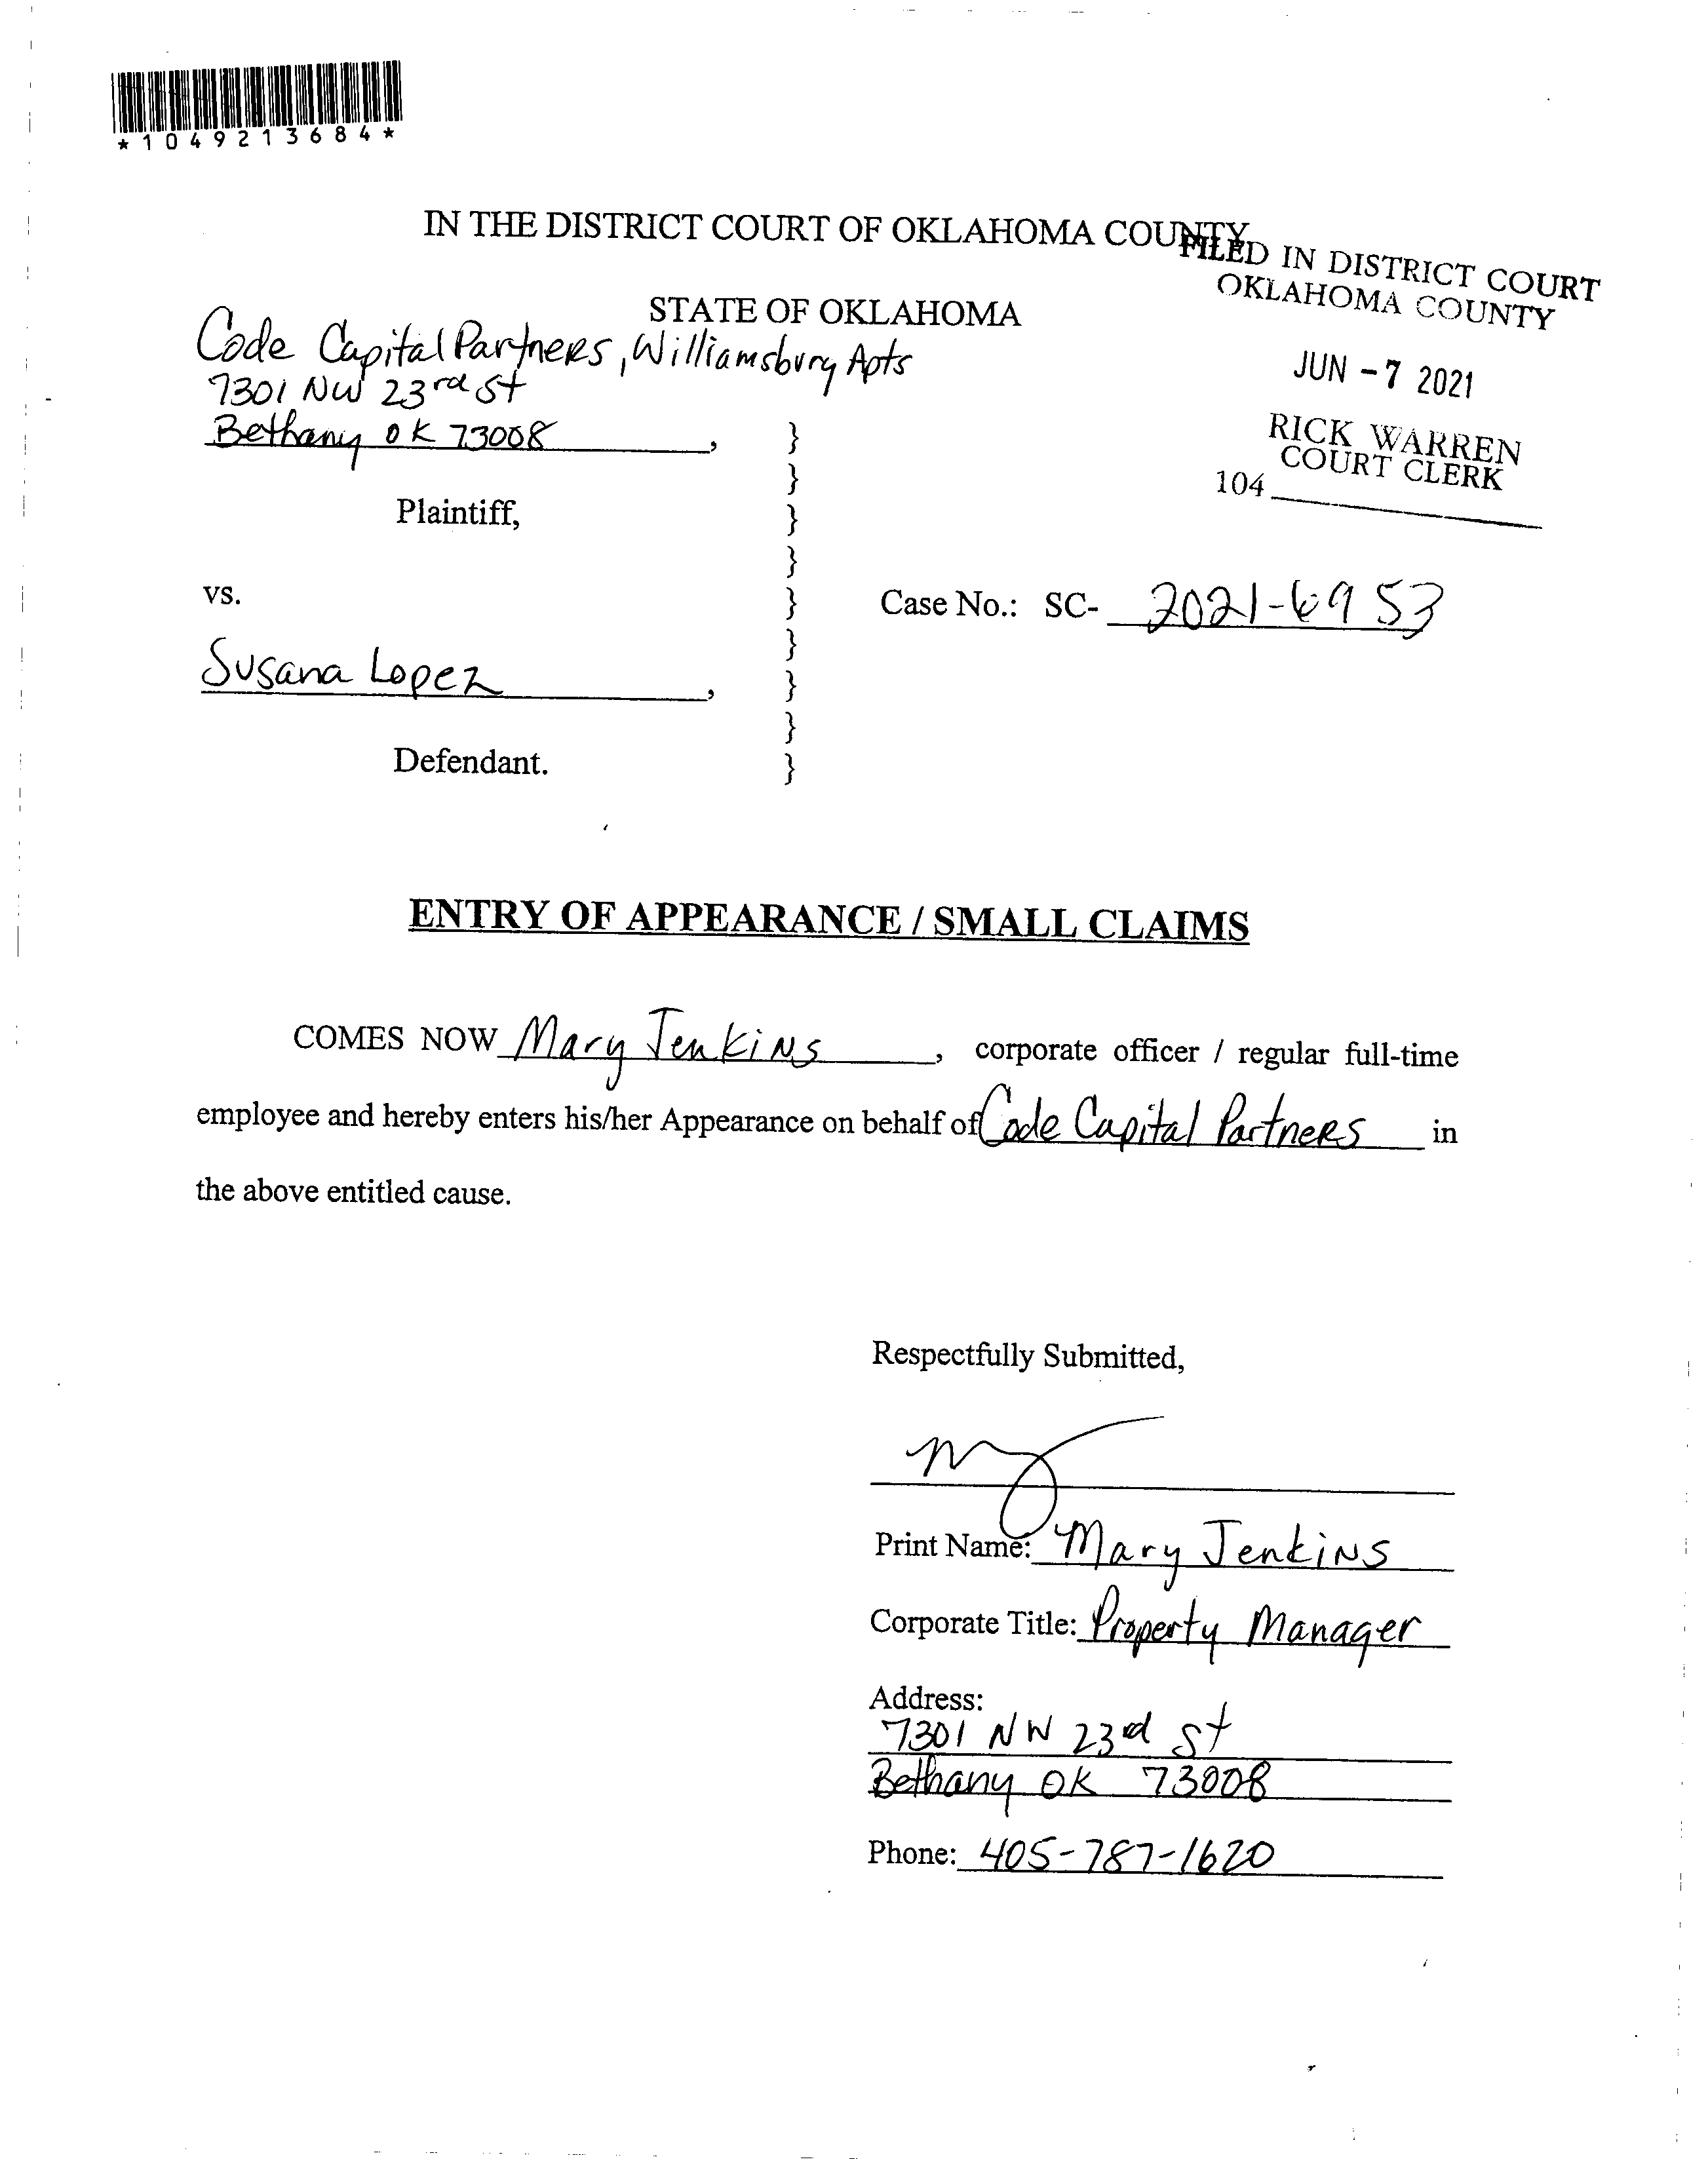 *1049213684*
IN THE DISTRICT COURT OF OKLAHOMA COUNTY
FILED IN DISTRICT COURT
OKLAHOMA COUNTY
STATE OF OKLAHOMA
JUN - 7 2021
RICK WARREN
COURT CLERK
104
Code Capital Partners, Williamsbury Apts
7301 NW 23rd St
Bethany OK 73008,
Plaintiff,
vs.
Case No.: SC- 2021-6953
Susana Lopez,
Defendant.
}
}
}
}
}
}
}
}
}
ENTRY OF APPEARANCE / SMALL CLAIMS
COMES NOW Mary Jenkins, corporate officer / regular full-time
employee and hereby enters his/her Appearance on behalf of Code Capital Partners in
the above entitled cause.
Respectfully Submitted,
Print Name: Mary Jenkins
Corporate Title: Property Manager
Address:
7301 NW 23rd St
Bethany OK 73008
Phone: 405-787-1620